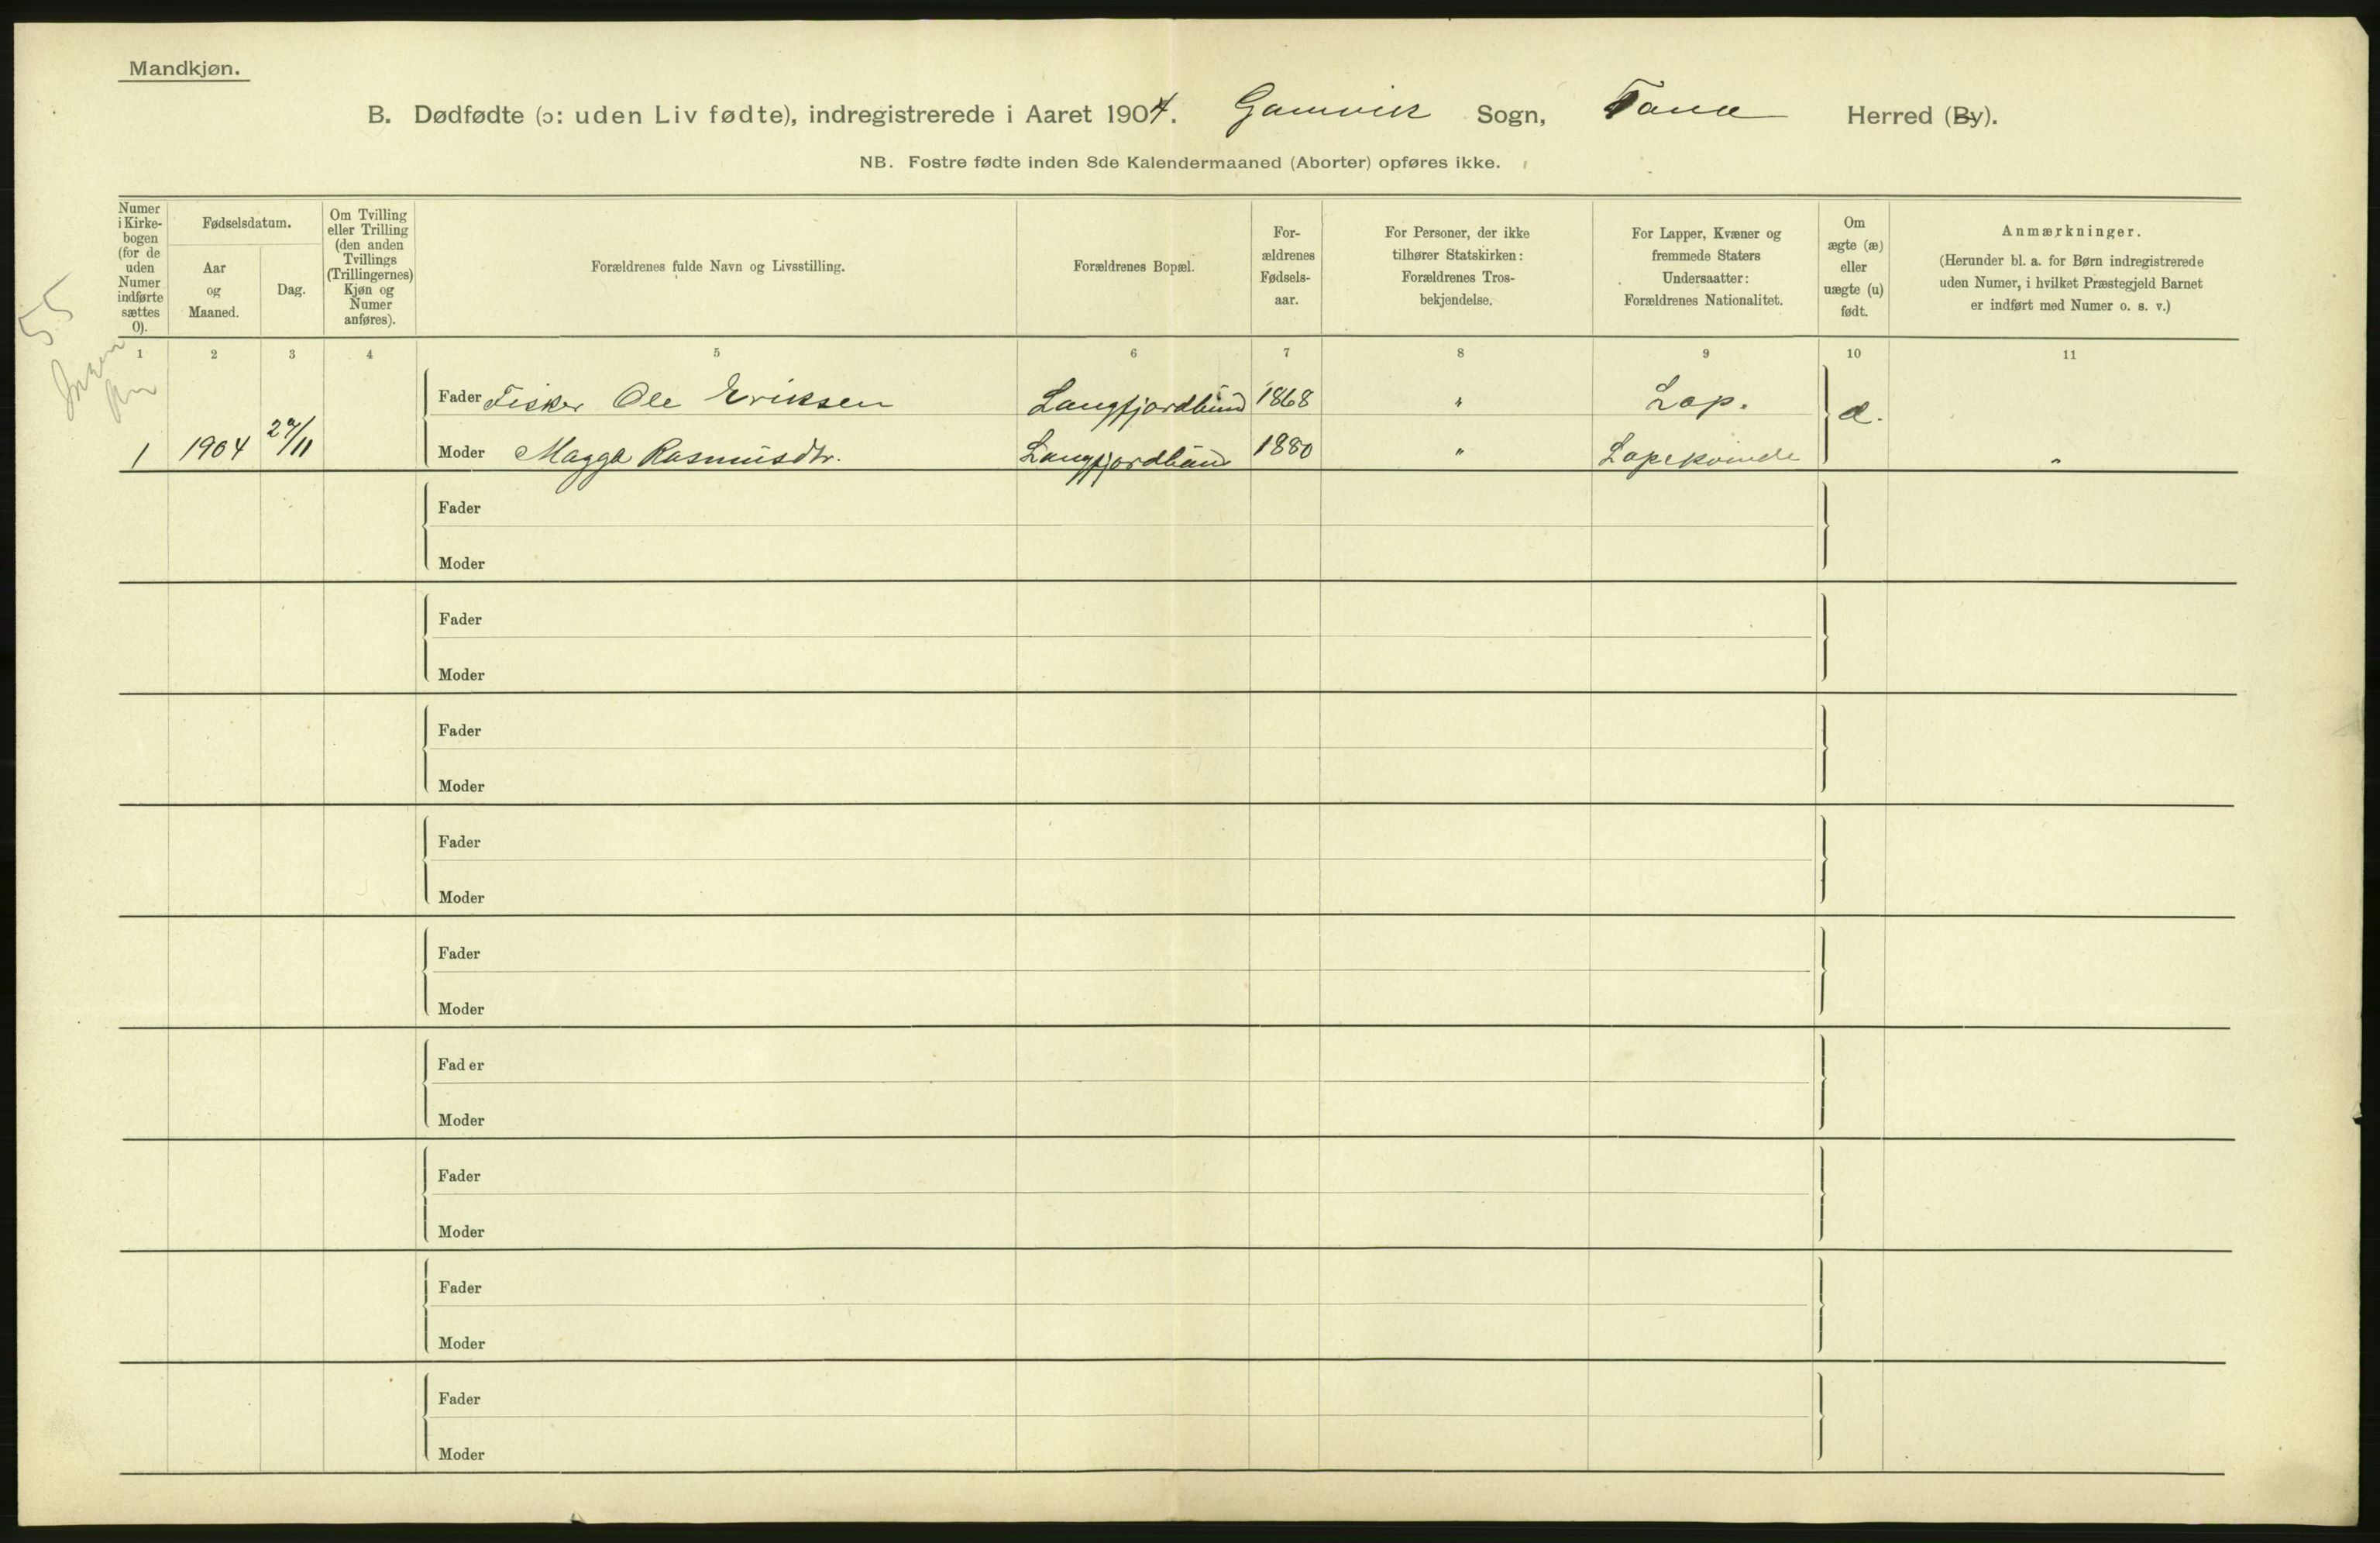 Mandkjøn.
B. Dødfødte (ɔ: uden Liv fødte), indregistrerede i Aaret 1904. Gamvik Sogn, Tana Herred (By).
NB. Fostre fødte inden 8de Kalendermaaned (Aborter) opføres ikke.
Numer
i Kirke-
bogen
(for de
uden
Numer
indførte
sættes
0).
Fødselsdatum.
Aar
og
Maaned.
Dag.
Om Tvilling
eller Trilling
(den anden
Tvillings
(Trillingernes)
Kjøn og
Numer
anføres).
Forældrenes fulde Navn og Livsstilling.
Forældrenes Bopæl.
For-
ældrenes
Fødsels-
aar.
For Personer, der ikke
tilhører Statskirken:
Forældrenes Tros-
bekjendelse.
For Lapper, Kvæner og
fremmede Staters
Undersaatter:
Forældrenes Nationalitet.
Om
ægte (æ)
eller
uægte (u)
født.
Anmærkninger.
(Herunder bl. a. for Børn indregistrerede
uden Numer, i hvilket Præstegjeld Barnet
er indført med Numer o. s. v.)
55
1 2 3 4 5 6 7 8 9 10 11
Fader Fisker Ole Eriksen Langfjordbund 1868 " Lap. æ.
1 1904 Moder Magga Rasmusdtr. Langfjordbund 1880 " Lapekvinde "
Fader
Moder
Fader
Moder
Fader
Moder
Fader
Moder
Fader
Moder
Fader
Moder
Fader
Moder
Fader
Moder
Fader
Moder